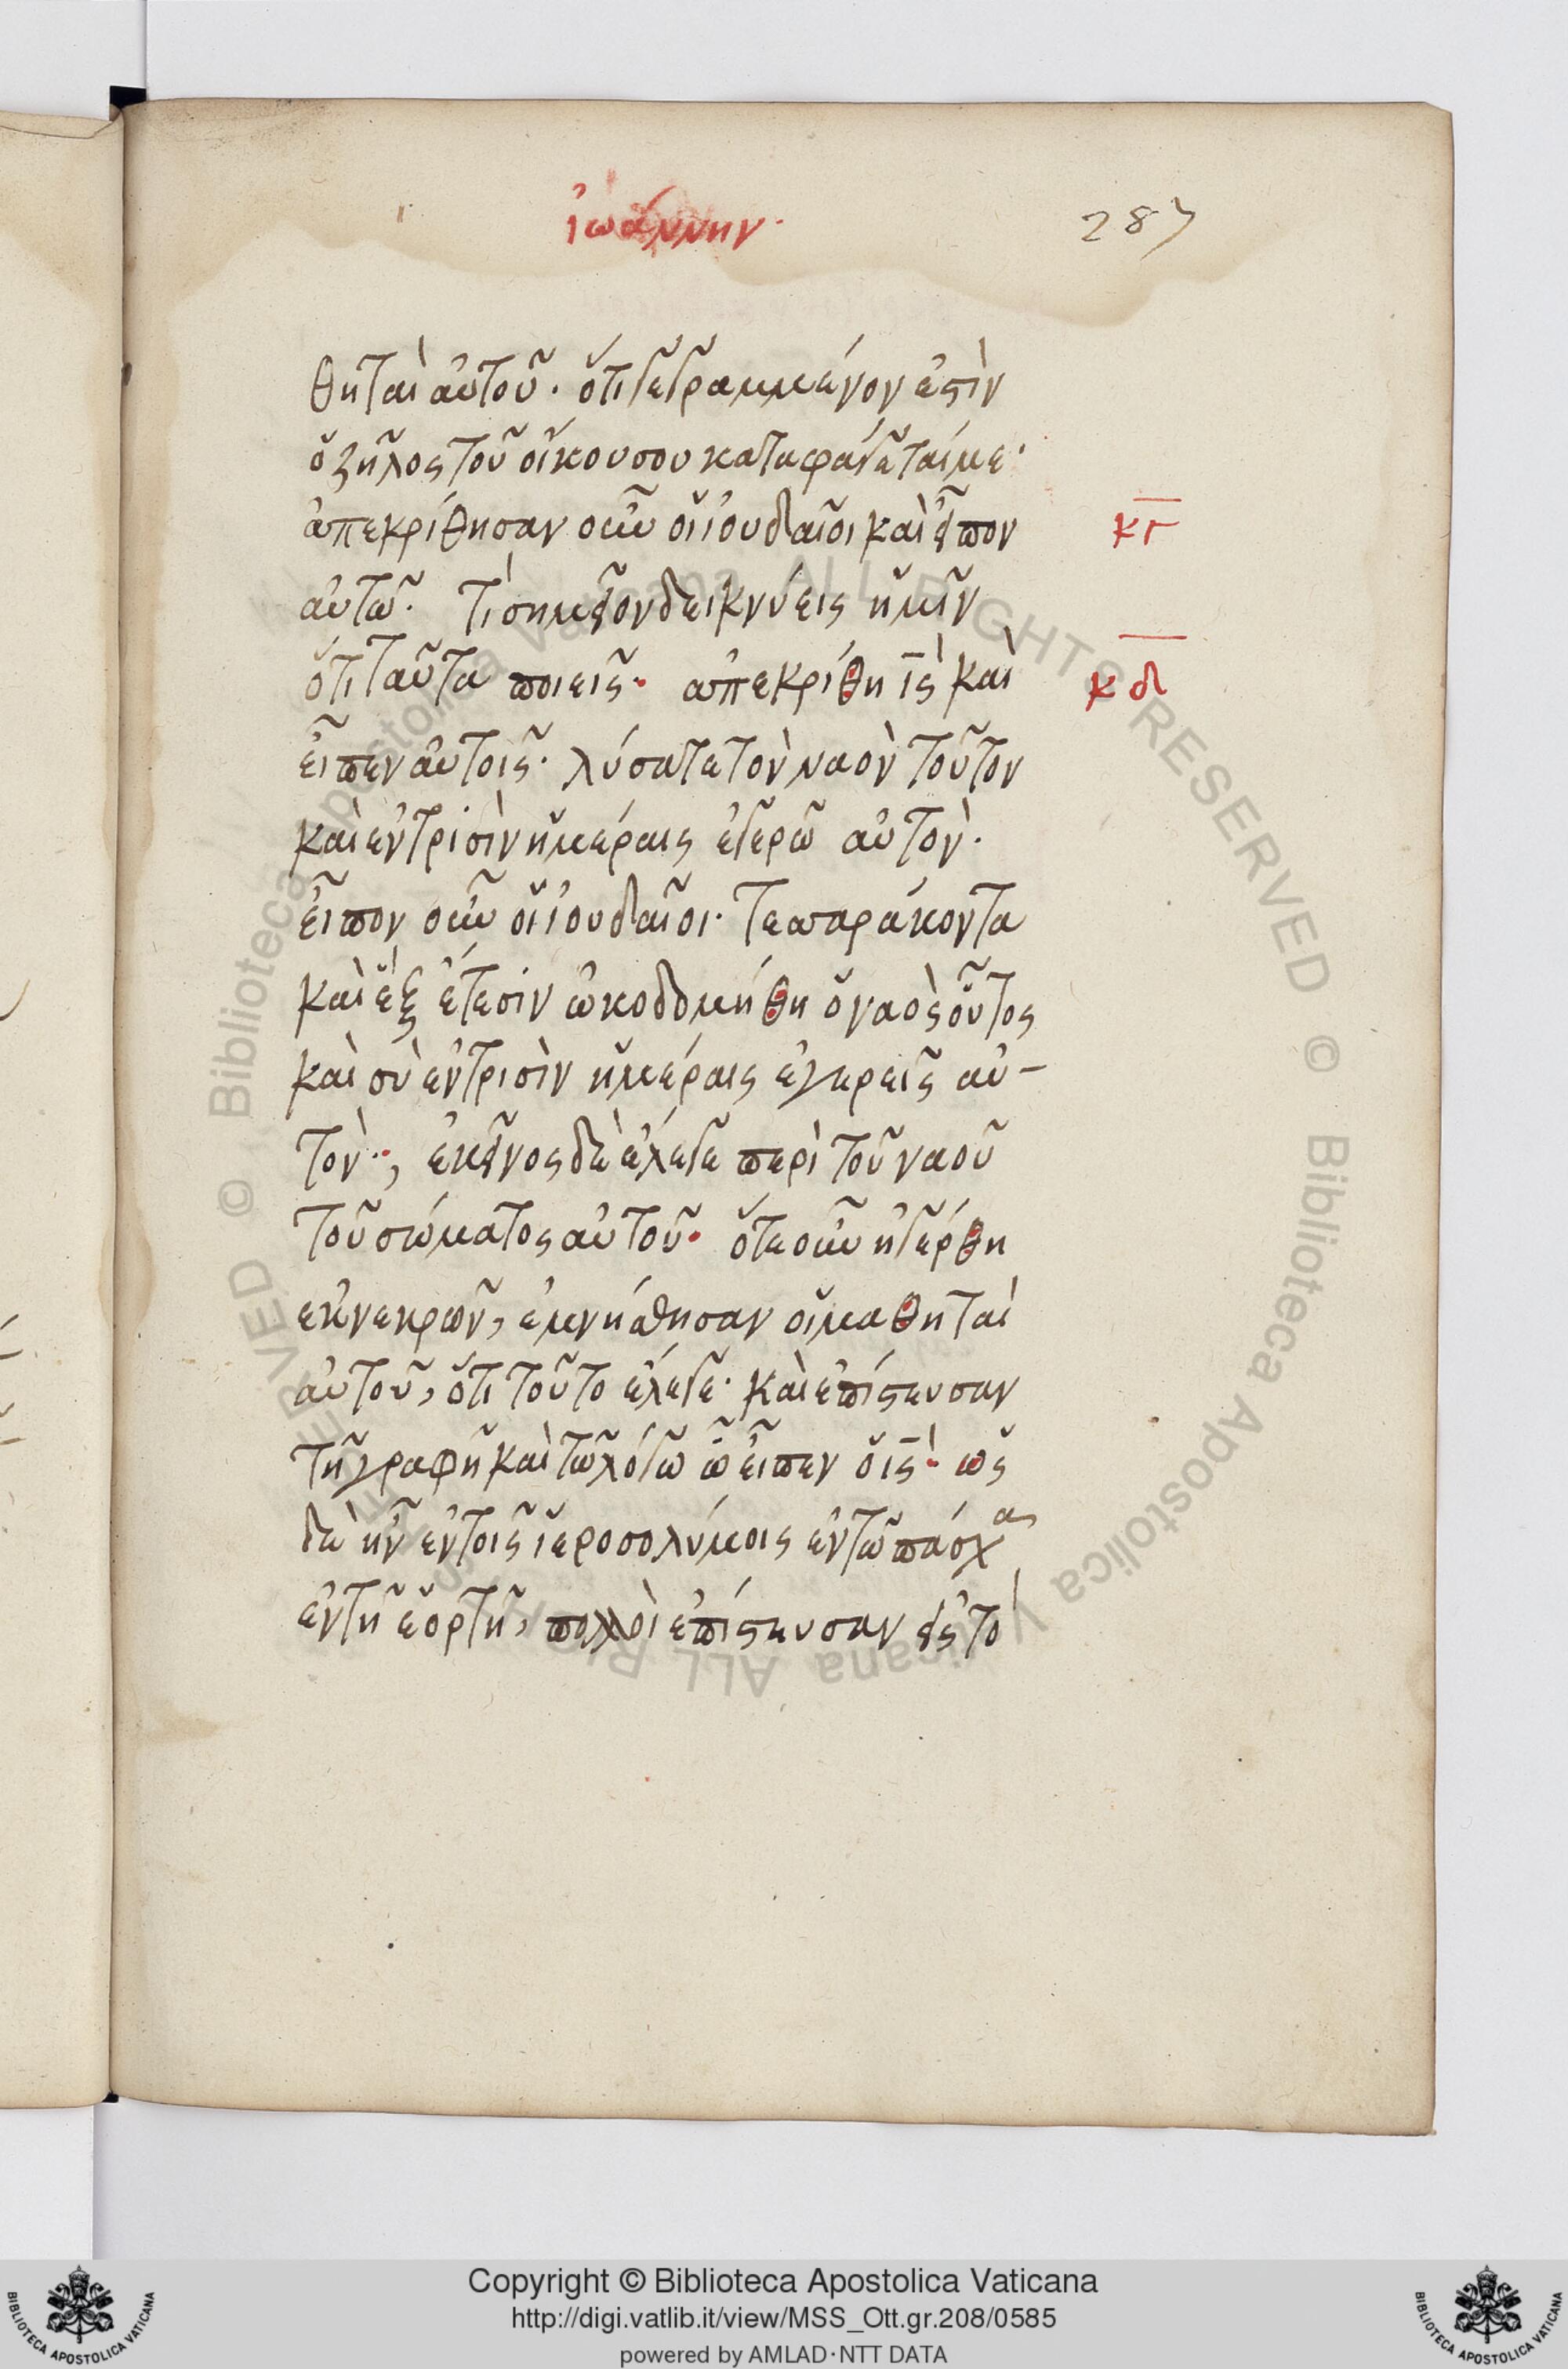 ἰωάννην·
287
θηταὶ αὐτοῦ· ὅτι γεγραμμένον ἐστὶν
ὁ ζῆλος τοῦ οἴκου σου καταφάγεταί με·
ἀπεκρίθησαν οὖν οἱ ἰουδαῖοι καὶ εἶπον
κγ
αὐτῶ· τί σημεῖον δεικνύεις ἡμῖν
ὅτι ταῦτα ποιεῖς· ἀπεκρίθη ις καὶ
κδ
εἶπεν αὐτοῖς· λύσατε τὸν ναὸν τοῦτον
καὶ ἐν τρισὶν ἡμέραις ἐγερῶ αὐτὸν·
εἶπον οὖν οἱ ἰουδαῖοι· τεσσαράκοντα
καὶ ἓξ ἔτεσιν ὠκοδομήθη ὁ ναὸς οὗτος
καὶ σὺ ἐν τρισὶν ἡμέραις ἐγερεῖς αὐ-
τὸν·, ἐκεῖνος δὲ ἔλεγε περὶ τοῦ ναοῦ
τοῦ σώματος αὐτοῦ· ὅτε οὖν ἠγέρθη
ἐκ νεκρῶν, ἐμνήσθησαν οἱ μαθηταὶ
αὐτοῦ, ὅτι τοῦτο ἔλεγε· καὶ ἐπίστευσαν
τῆ γραφῆ καὶ τῶ λόγω ὧ εἶπεν ὁ ις· ὡς
δὲ ἦν ἐν τοῖς ἱεροσολύμοις ἐν τῶ πάσχα
ἐν τῆ ἑορτῆ, πολλοὶ ἐπίστευσαν εἰς τὸ
© Biblioteca Apostolica Vaticana ALL RIGHTS RESERVED
© Biblioteca Apostolica Vaticana ALL RIGHTS RESERVED
Copyright © Biblioteca Apostolica Vaticana
http://digi.vatlib.it/view/MSS_Ott.gr.208/0585
powered by AMLAD·NTT DATA
BIBLIOTECA APOSTOLICA VATICANA
BIBLIOTECA APOSTOLICA VATICANA